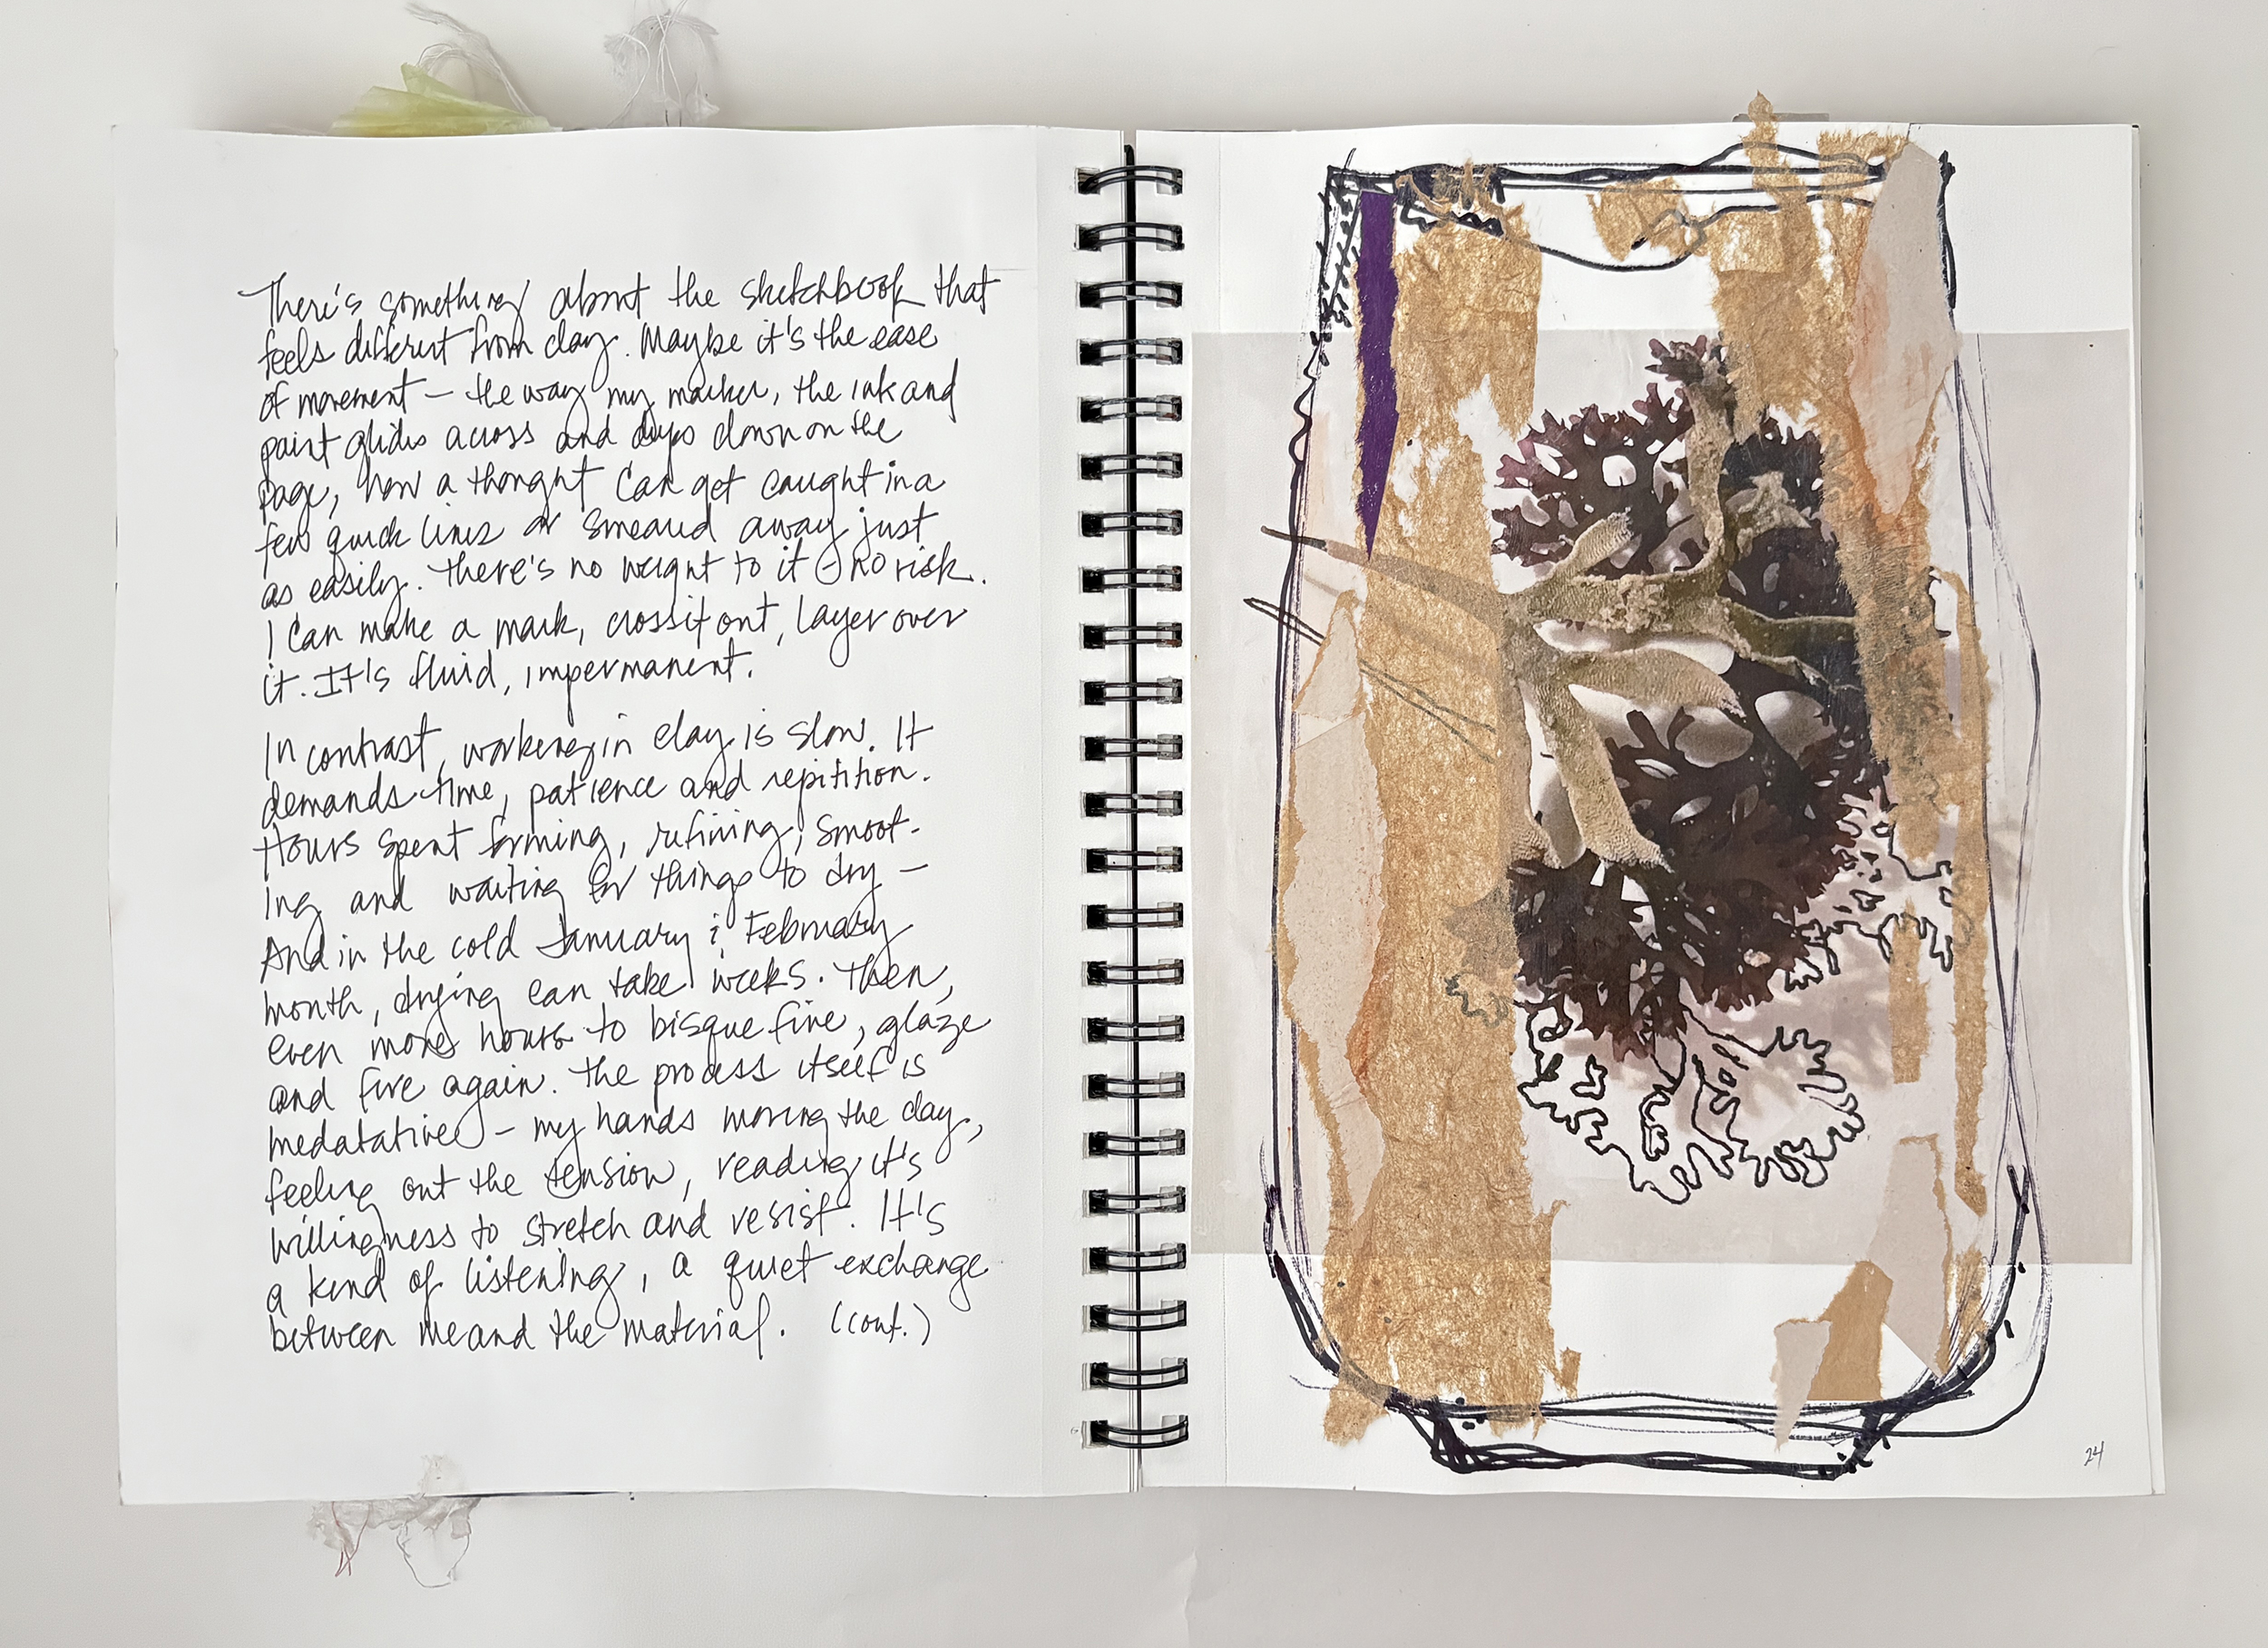 There's something about the sketchbook that
feels different from clay. Maybe it's the ease
of movement – the way my marker, the ink and
paint glides across and dips down on the
page, how a thought can get caught in a
few quick lines or smeared away just
as easily. There's no weight to it – no risk.
I can make a mark, cross it out, layer over
it. It's fluid, impermanent.
In contrast, working in clay is slow. It
demands time, patience and repitition.
Hours spent forming, refining, smoot-
ing and waiting for things to dry –
And in the cold January & February
month, drying can take weeks. Then,
even more hours to bisque fire, glaze
and fire again. The process itself is
medatative – my hands moving the clay,
feeling out the tension, reading it's
willingness to stretch and resist. It's
a kind of listening, a quiet exchange
between me and the material. (cont.)
24